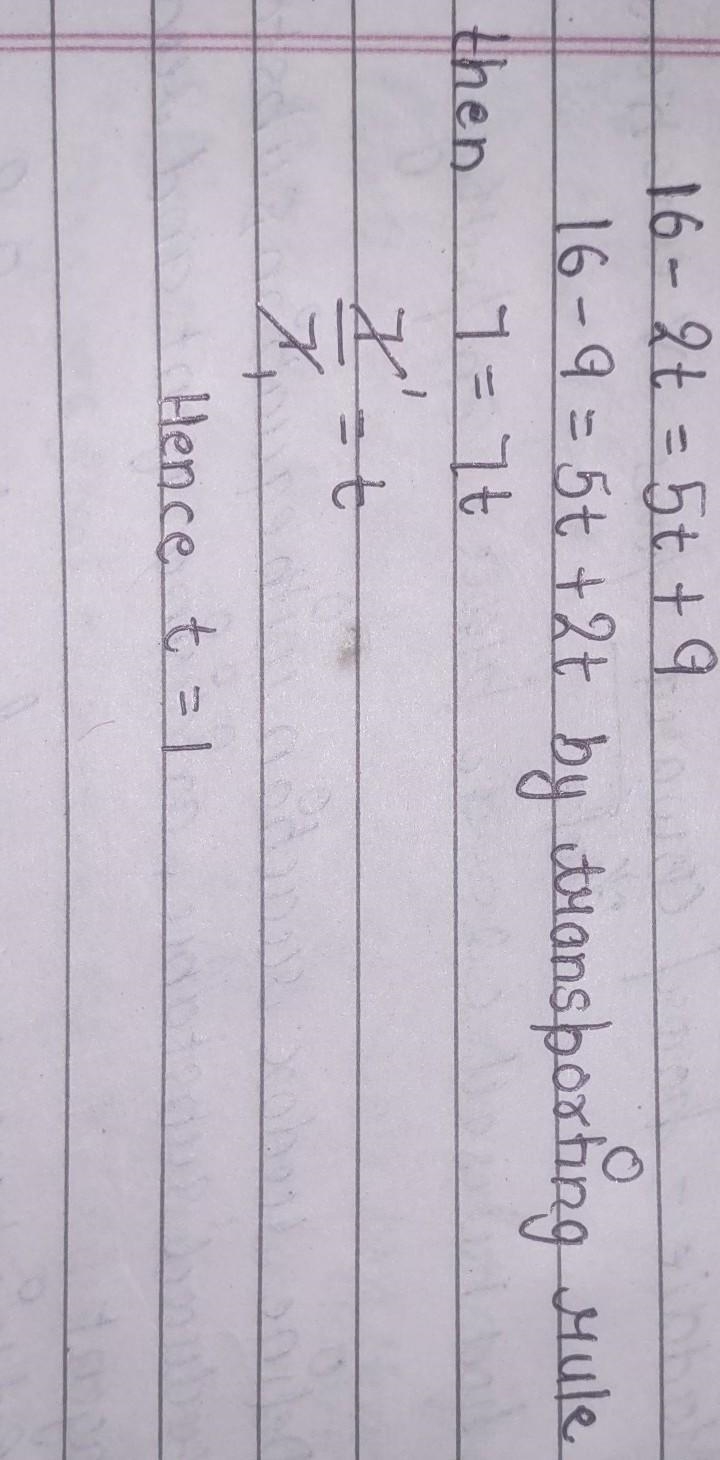 16 - 2t = 5t + 9
16 - 9 = 5t + 2t by transporting rule
then 7 = 7t
7/7 1/1 = t
Hence t = 1